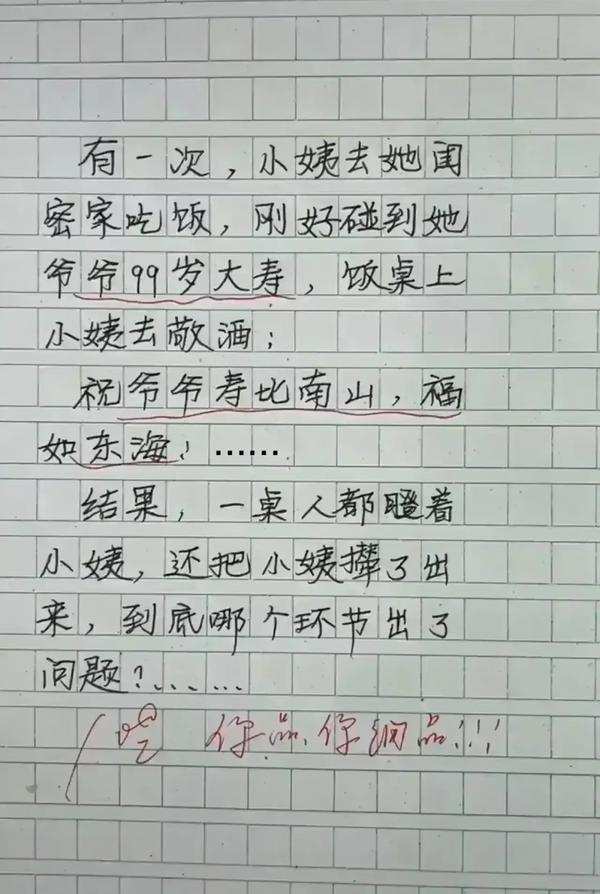 有一次，小姨去她闺
密家吃饭，刚好碰到她
爷爷99岁大寿，饭桌上
小姨去敬酒；
祝爷爷寿比南山，福
如东海！……
结果，一桌人都瞪着
小姨，还把小姨撵了出
来，到底哪个环节出了
问题？……
你品，你细品!!!